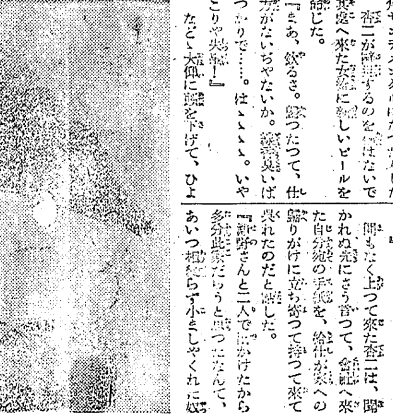 杏二が辭退するのを構はないで
其處へ來た女給に新しいビールを
命じた。
『まあ、飮るさ。歸つたつて、仕
方がないぢやないか。
つかりで……。はゝゝゝ。いや
こりや失禮！』
など、大仰に頭を下げて、ひよ
間もなく上つて來た杏二は、聞
かれぬ先にさう言つて、會社へ來
た自分宛の手紙を、給仕が家への
歸りがけに立ち寄つて持つて來て
呉れたのだと話した。
『新野さんと二人で出かけたから
多分此家だらうと思つたなんて、
あいつ相變らず小ましやくれた奴